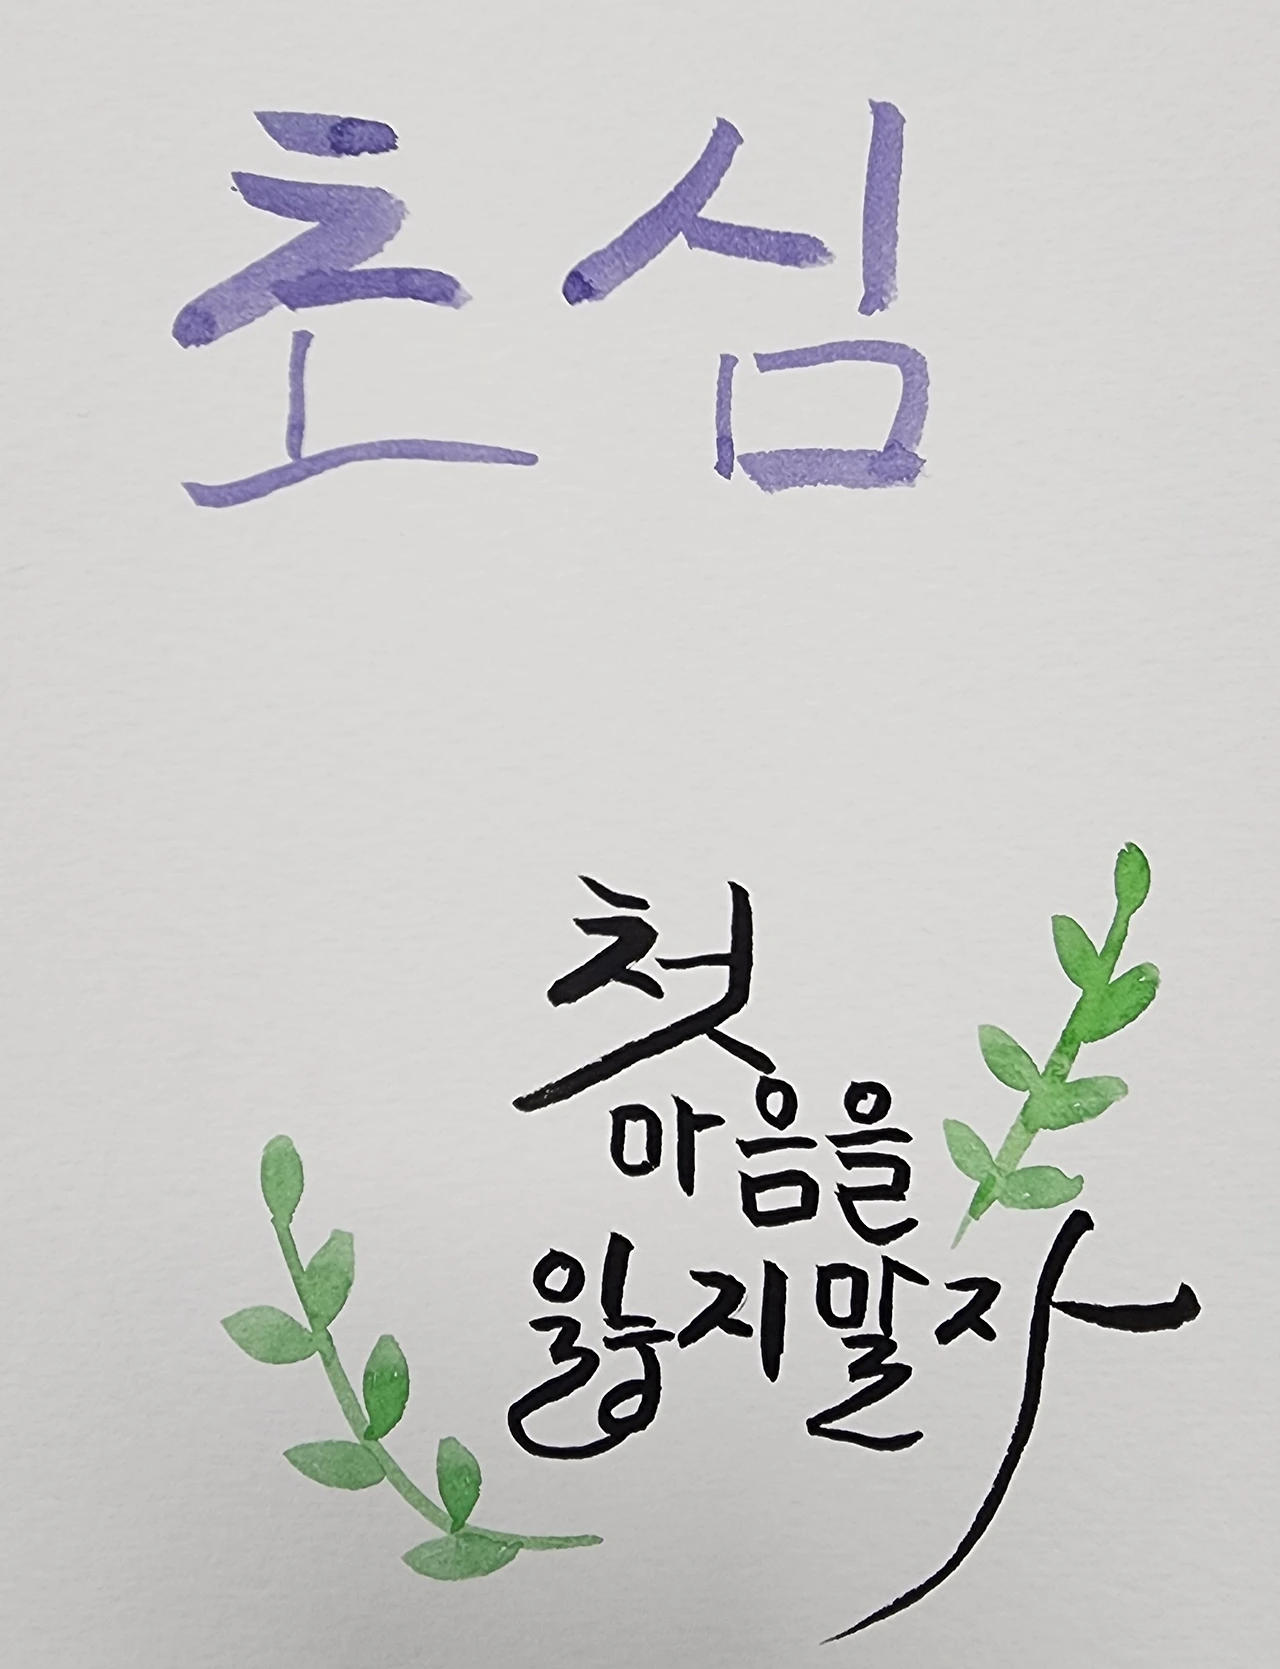 초심
첫
마음을
잃지말자